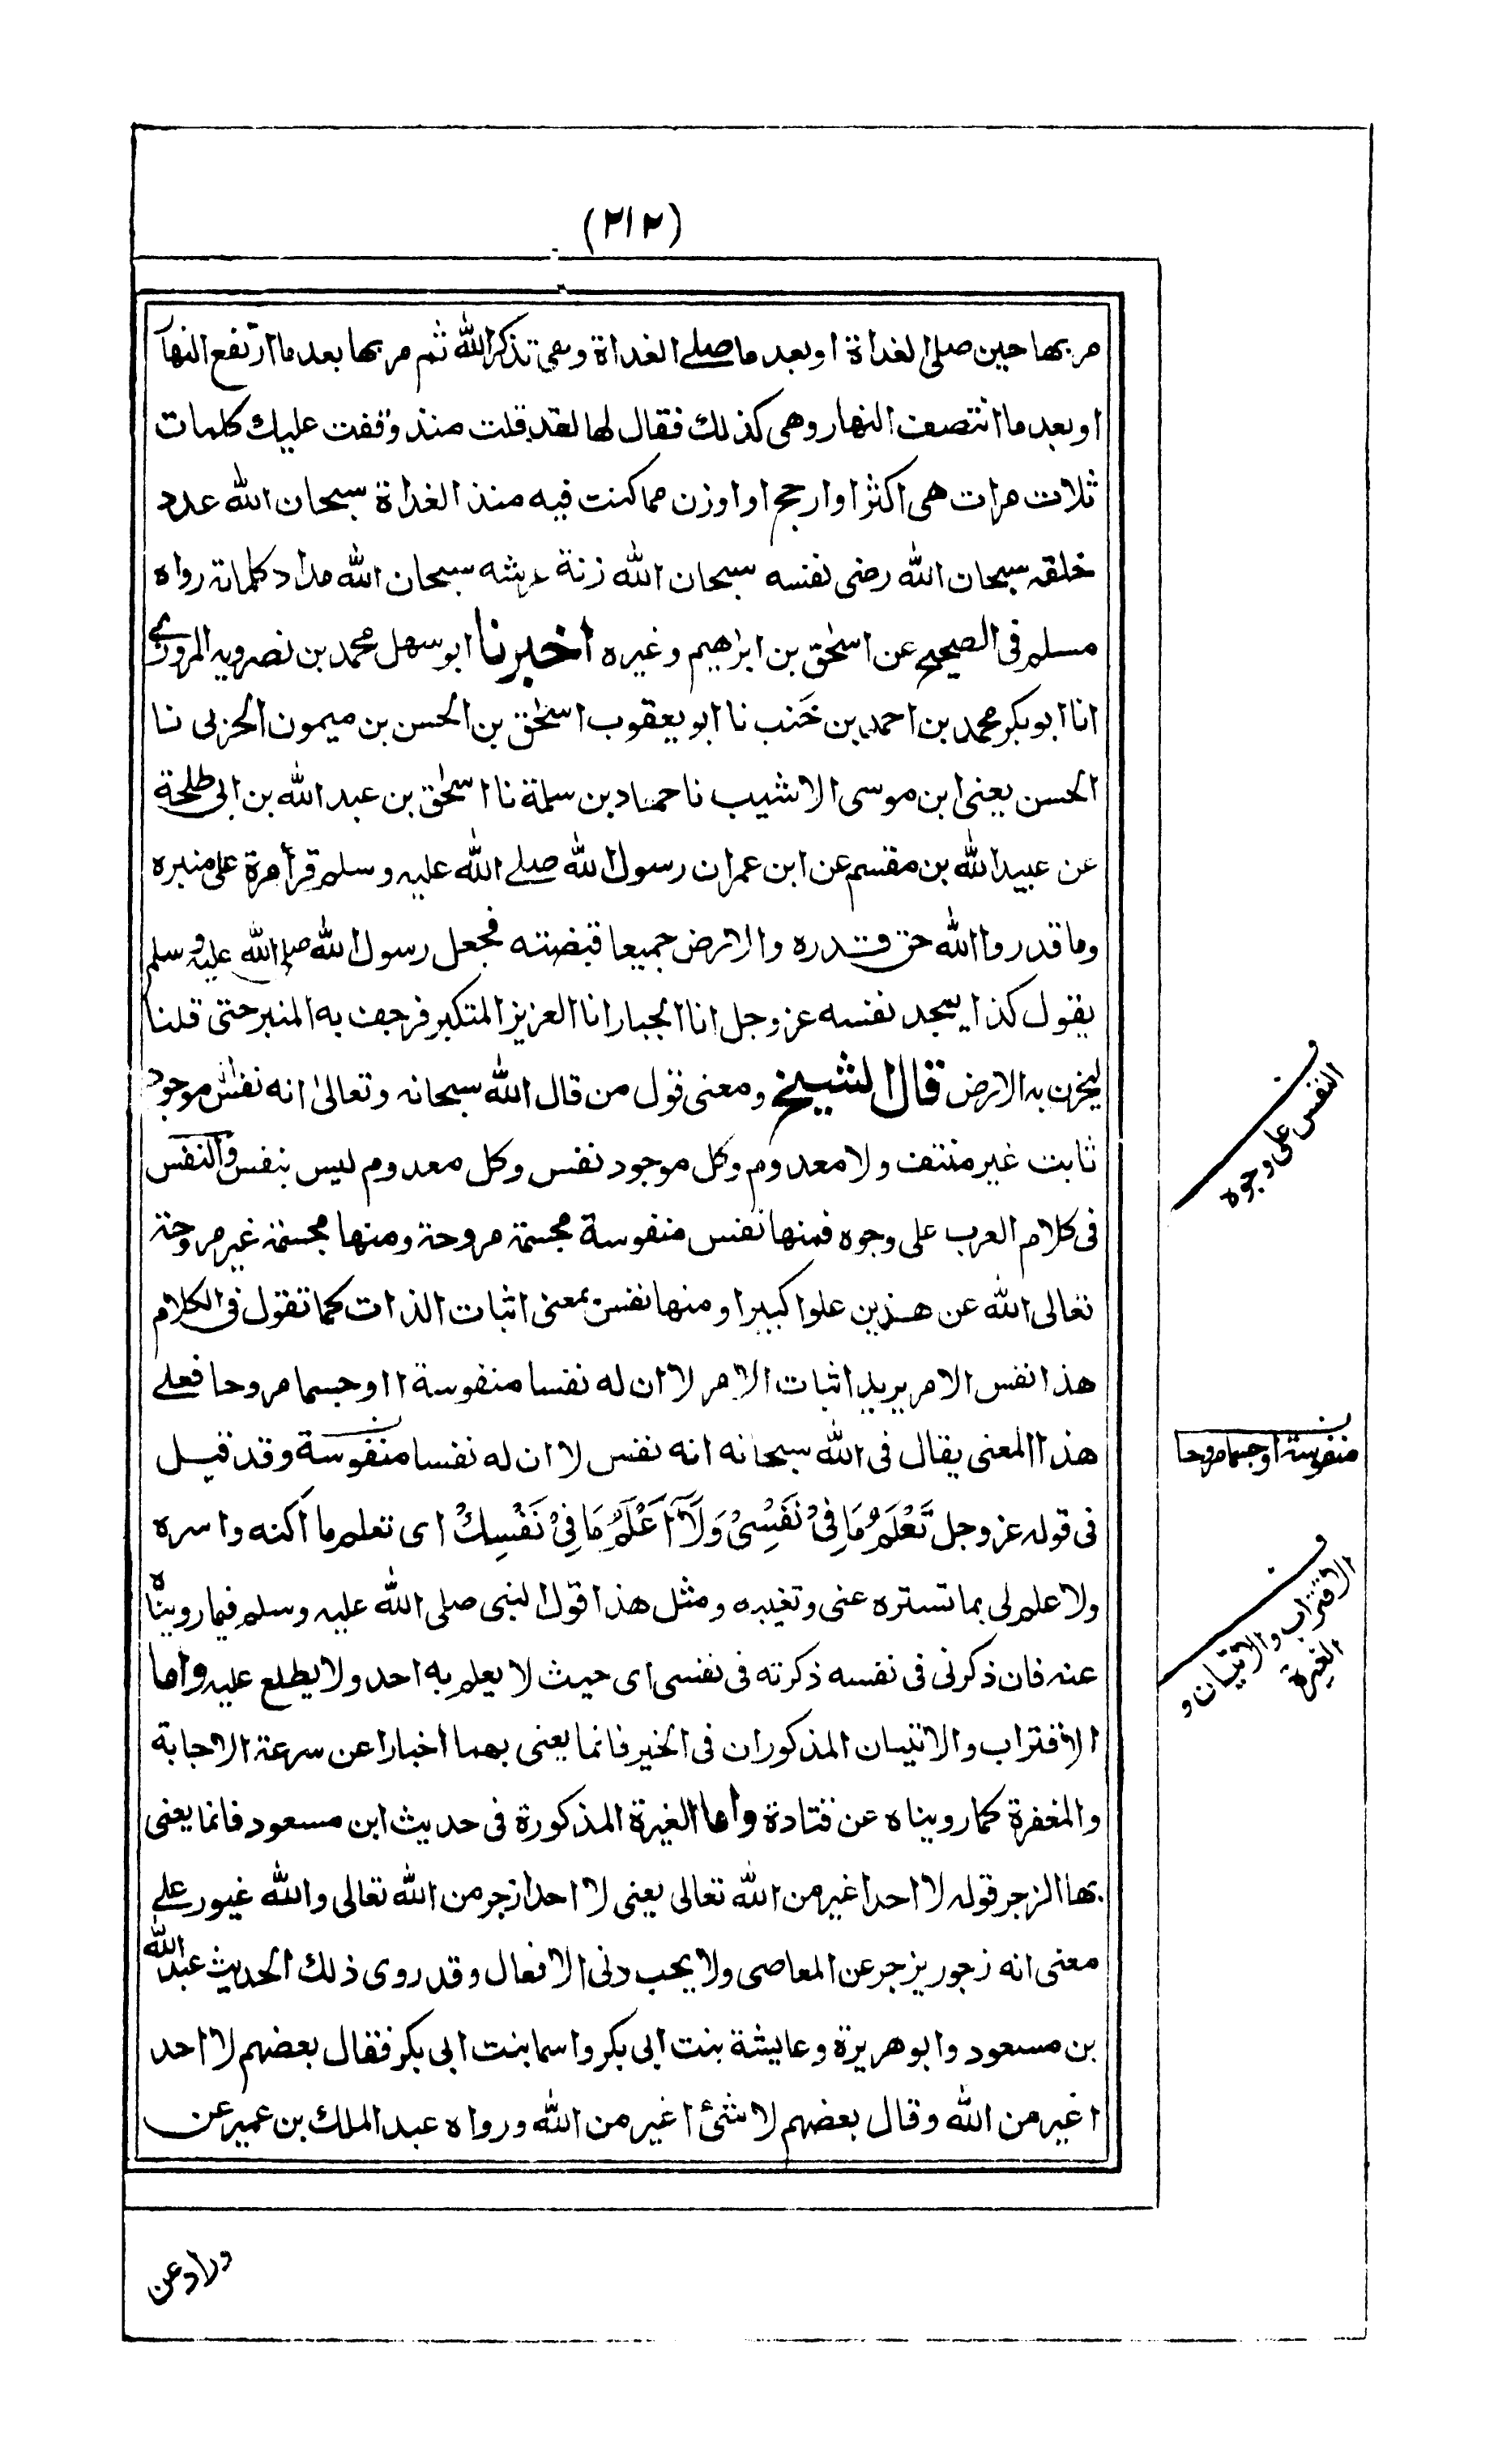 (٢١٢)
مر بها حين صلى الغداة او بعد ما صلے الغداة وهى تذكر الله ثم مر بها بعد ما ارتفع النهار
او بعد ما انتصف النهار وهى كذلك فقال لها لقد قلت منذ وقفت عليك كلمات
ثلاث مرات هى اكثر او ارجح او اوزن مما كنت فيه منذ الغداة سبحان الله عدد
خلقه سبحان الله رضى نفسه سبحان الله زنة عرشه سبحان الله مداد كلماته رواه
مسلم فى الصحيح عن اسحٰق بن ابرٰهيم وغيره اخبرنا ابو سهل محمد بن نصرويه المروزے
انا ابو بكر محمد بن احمد بن خَنب نا ابو يعقوب اسحٰق بن الحسن بن ميمون الحربى نا
الحسن يعنى ابن موسى الاشيب نا حماد بن سلمة نا اسحٰق بن عبد الله بن ابى طلحة
عن عبيد الله بن مقسم عن ابن عمر ان رسول الله صلے الله عليه وسلم قرأ مرة على منبره
وما قدروا الله حق قدره والارض جميعا قبضته فجعل رسول الله صلى الله عليه وسلم
يقول كذا يمجد نفسه عز وجل انا الجبار انا العزيز المتكبر فرجف به المنبر حتى قلنا
ليخرن به الارض قال الشيخ ومعنى قول من قال الله سبحانه وتعالىٰ انه نفس انه موجود
ثابت غير منتف ولا معدوم وكل موجود نفس وكل معدوم ليس بنفس والنفس
فى كلام العرب على وجوه فمنها نفس منفوسة مجسمة مروحة ومنها مجسمة غير مروحة
تعالى الله عن هذين علوا كبيرا ومنها نفس بمعنى اثبات الذات كما تقول فى الكلام
هذا نفس الامر يريد اثبات الامر لا ان له نفسا منفوسة ا او جسما مروحا فعلے
هذا المعنى يقال فى الله سبحانه انه نفس لا ان له نفسا منفوسة وقد قيل
فى قوله عز وجل تَعْلَمُ مَا فِىْ نَفْسِىْ وَلَآ اَعْلَمُ مَا فِىْ نَفْسِكْ اى تعلم ما اكنه واسره
ولا علم لى بما تستره عنى وتغيبه ومثل هذا قول النبى صلى الله عليه وسلم فيما رويناه
عنه فان ذكرنى فى نفسه ذكرته فى نفسى اى حيث لا يعلم به احد ولا يطلع عليه واما
الاقتراب والاتيان المذكوران فى الخبر فانما يعنى بهما اخبارا عن سرعة الاجابة
والمغفرة كما رويناه عن قتادة واما الغيرة المذكورة فى حديث ابن مسعود فانما يعنى
بها الزجر قوله لا احد اغير من الله تعالى يعنى لا احد ازجر من الله تعالى والله غيور علے
معنى انه زجور يزجر عن المعاصى ولا يحب دنى الافعال وقد روى ذلك الحديث عبد الله
بن مسعود وابو هريرة وعايشة بنت ابى بكر واسما بنت ابى بكر فقال بعضهم لا احد
اغير من الله وقال بعضهم لا شئ اغير من الله ورواه عبد الملك بن عمير عن
النفس على وجوه
منفوسة او جسما مروحا
الاقتراب والاتيان و
الغيرة
وراد عن